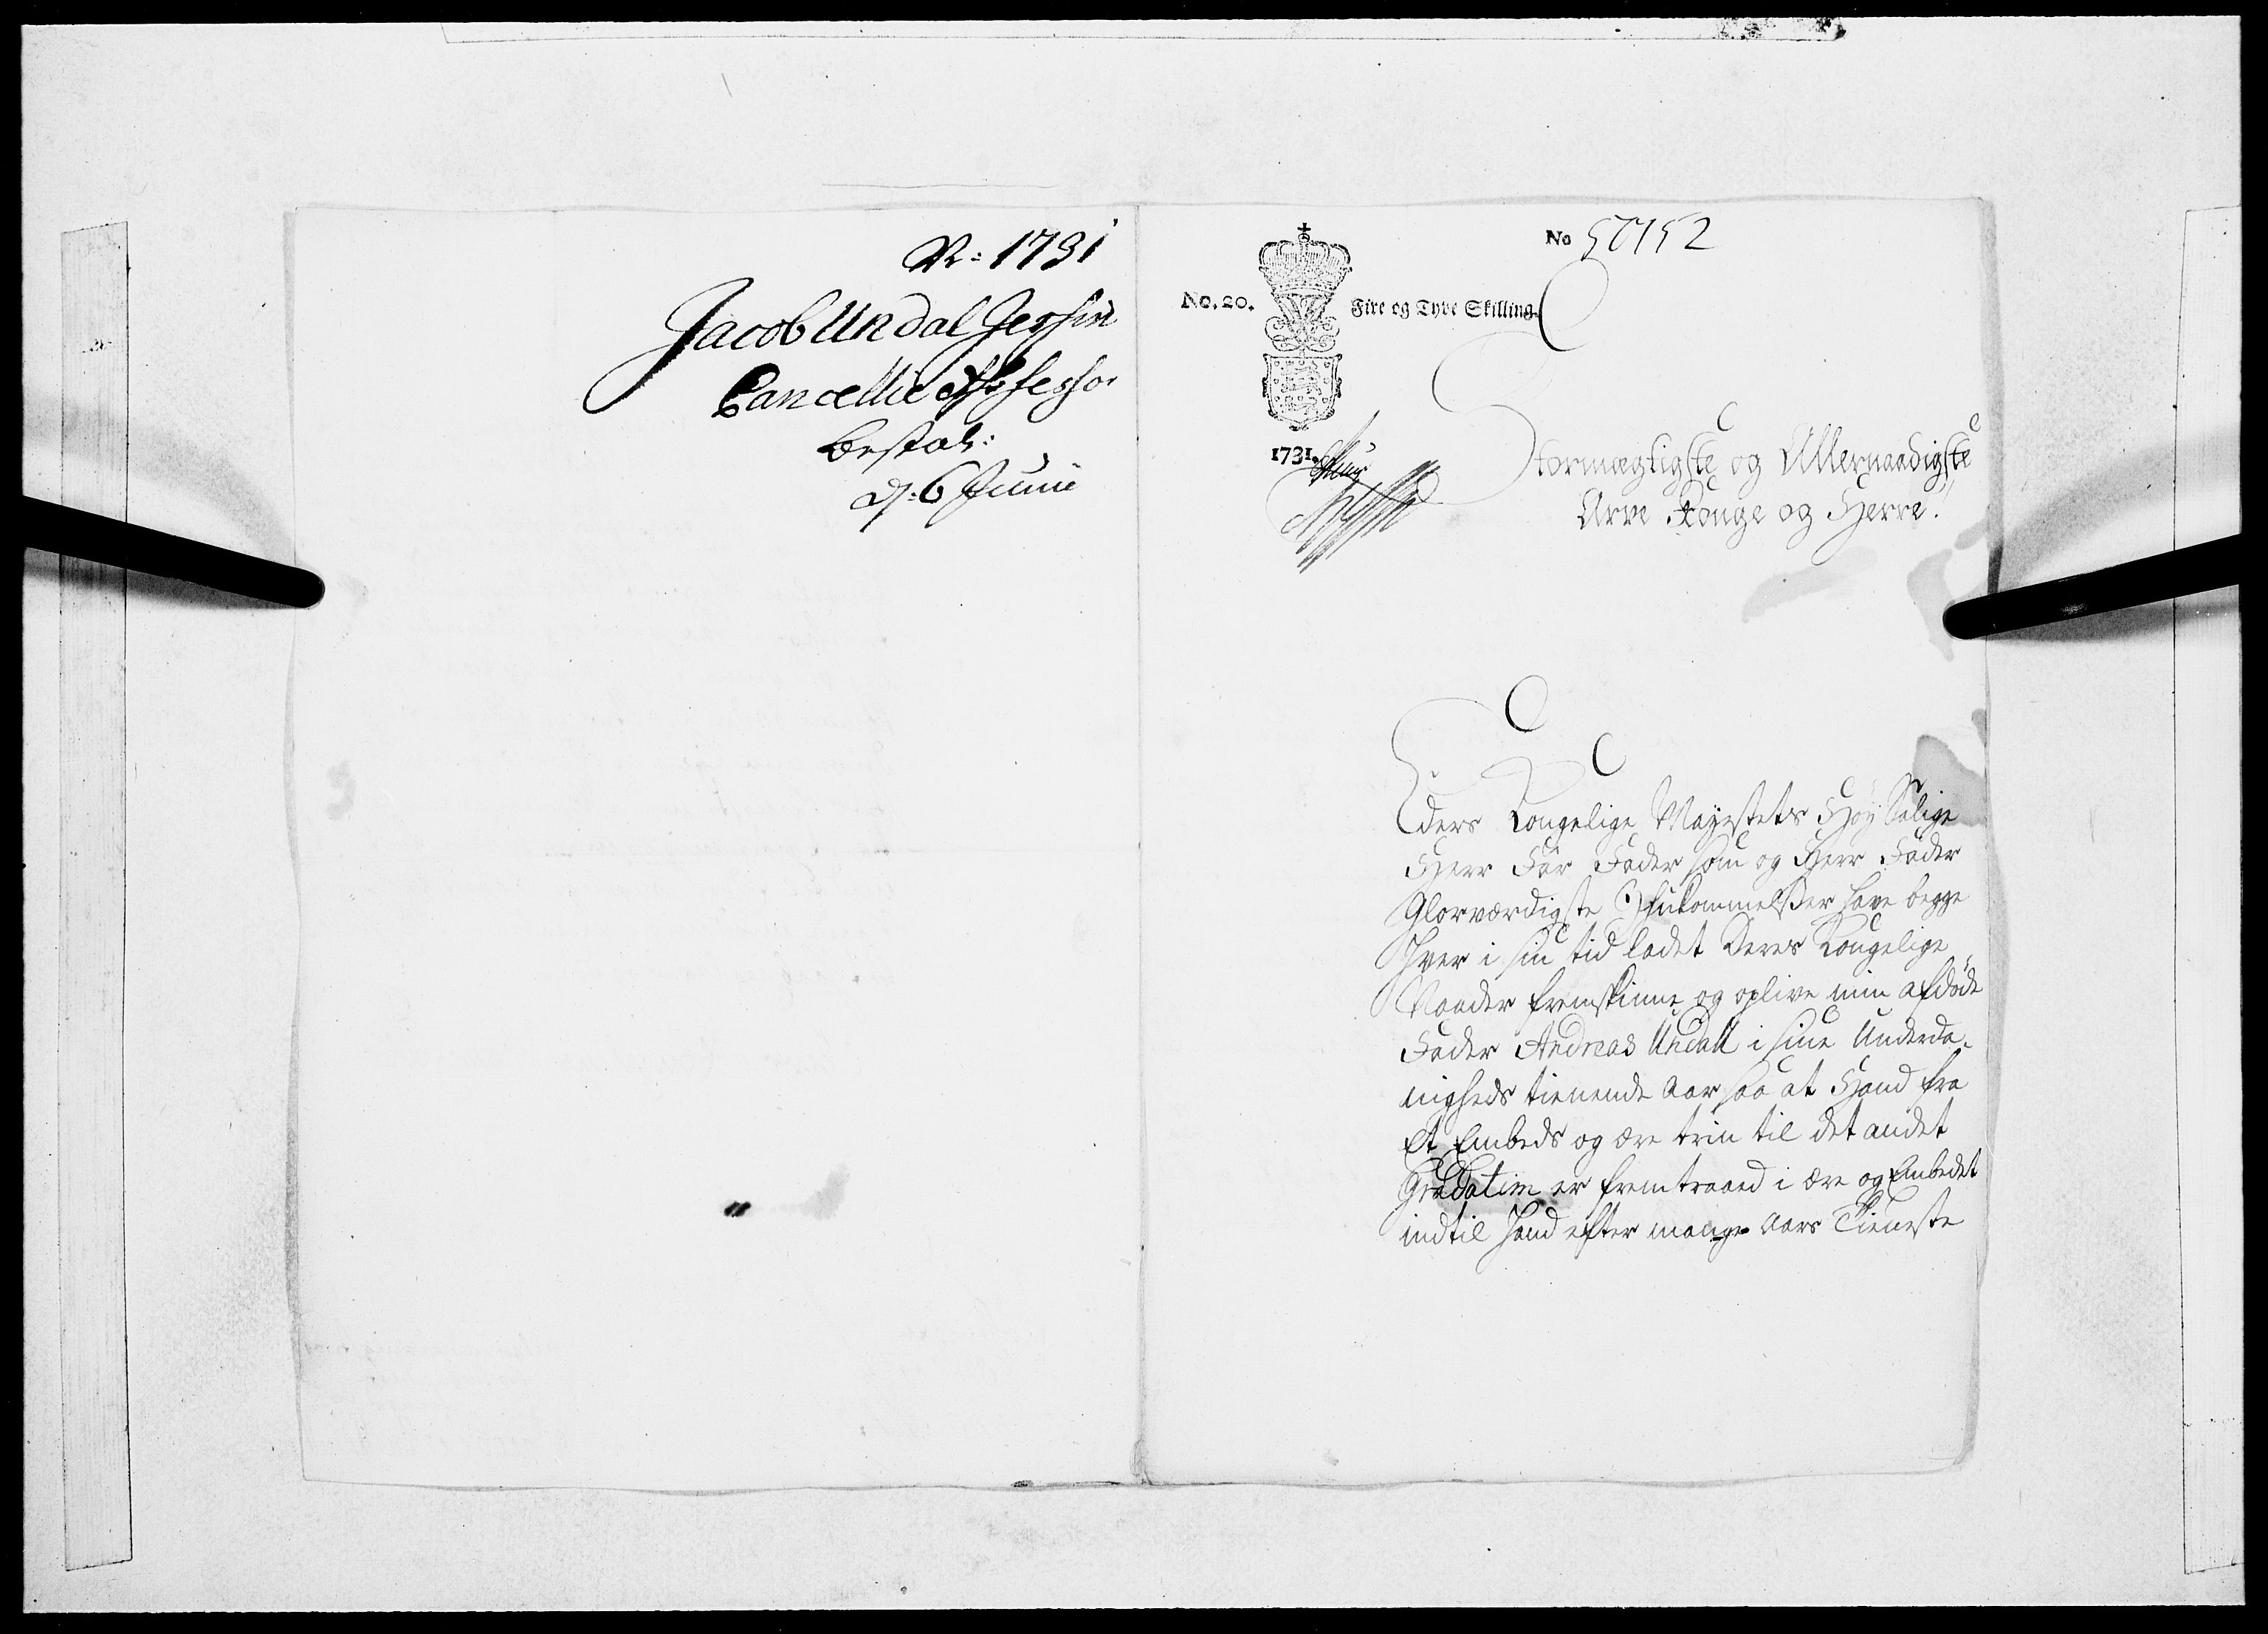 N: 1731
Jacob Undal Jersin
Cancellie Assessor
Bestal:
d: 6 Junii
No 50152
No. 20.
Fire og Tyve Skilling
1731.
Stormegtigste og Allernaadigste
Arve Konge og Herre!
Eders Kongelige Mayestets Høy Salige
Herr Far Fader som og Herr Fader
Glorværdigste Ihukommelsser have begge
Hver i sin tid ladet Deres Kongelige
Naader fremskinne og oplive min afdøde
Fader Andreas Undall i sine Underda-
nigheds tienende Aar saa at Hand fra
Et Embeds og ære trin til det andet
Gradatim er fremtraad i ære og Embedet
indtil Hand efter mange Aars Tieneste